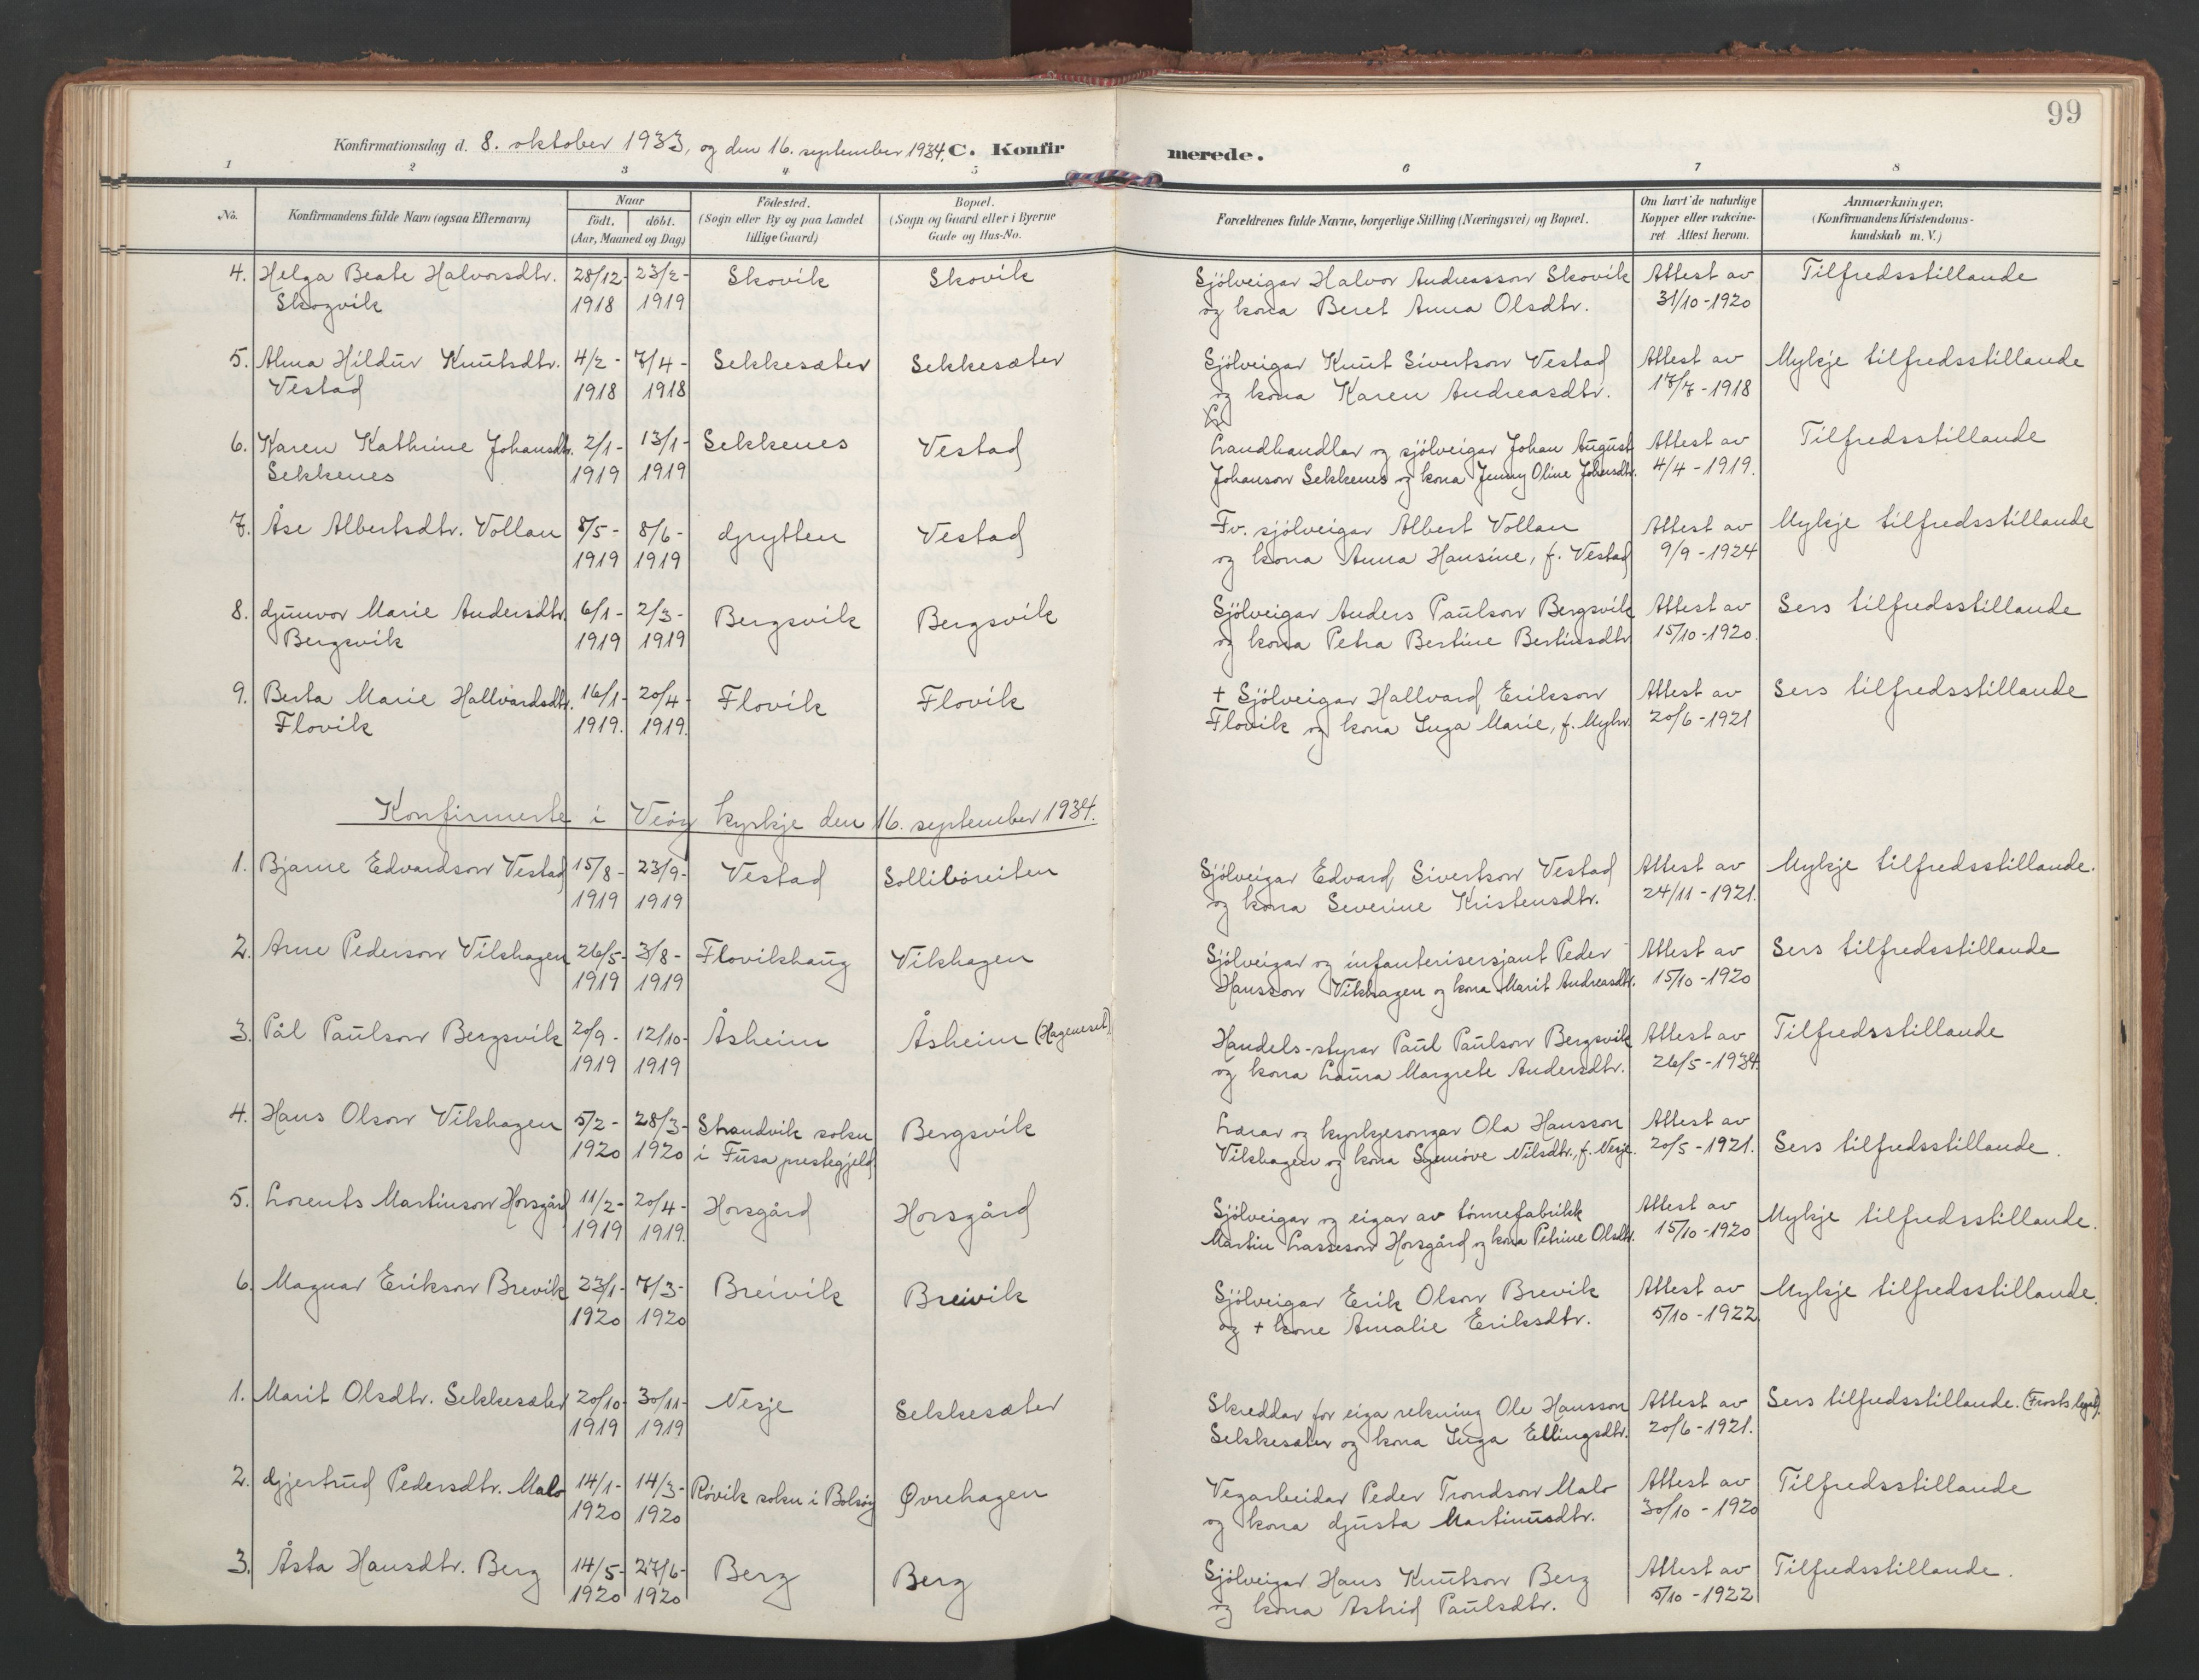 99
Konfirmationsdag d. 8. oktober 1933, og den 16. september 1934. C. Konfirmerede.
1 2 3 4 5 6 7 8
No. Konfirmandens fulde Navn (ogsaa Efternavn) Naar født. døbt. (Aar, Maaned og Dag) Fødested. (Sogn eller By og paa Landet tillige Gaard) Bopæl. (Sogn og Gaard eller i Byerne Gade og Hus-No. Forældrenes fulde Navne, borgerlige Stilling (Næringsvei) og Bopæl. Om havt de naturlige Kopper eller vakcineret Attest herom. Anmærkninger. (Konfirmandens Kristendomskundskab m. V.)
4. Helga Beate Halvorsdtr. 28/12- 23/2- Skovik Skovik Sjölveigar Halvor Andreasson Skovik Attest av Tilfredsstillande
Skogvik 1918 1919 og kona Beret Anna Olsdtr. 31/10-1920
5. Alma Hildur Knutsdtr. 4/2- 7/4- Sekkesæter Sekkesæter Sjölveigar Knut Sivertson Vestad Attest av Mykje tilfredsstillande
Vestad 1918 1918 og kona Karen Andreasdtr. 17/7-1918
6. Karen Kathrine Johansdtr. 2/1- 13/1- Sekkenes Vestad Landhandlar og sjölveigar Johan August Attest av Tilfredsstillande
Sekkenes 1919 1919 Johanson Sekkenes og kona Jenny Oline Johansdtr. 4/4-1919.
7. Åse Albertsdtr. Vollan 8/5- 8/6- Grytten Vestad Fv. sjölveigar Albert Vollan Attest av Mykje tilfredsstillande
1919 1919 og kona Anna Hansine, f. Vestad 9/9-1924
8. Gunvor Marie Andersdtr. 6/1- 2/3- Bergsvik Bergsvik Sjölveigar Anders Paulson Bergsvik Attest av Sers tilfredsstillande
Bergsvik 1919 1919 og kona Petra Bertine Bertinsdtr 15/10-1920.
9. Berta Marie Hallvardsdtr. 16/1- 20/4- Flovik Flovik + Sjölveigar Hallvard Erikson Attest av Sers tilfredsstillande
Flovik 1919. 1919. Flovik og kona Inga Marie, f. Myhr. 20/6-1921
Konfirmerte i Veöy kyrkje den 16. september 1934.
1. Bjarne Edvardson Vestad 15/8- 23/9- Vestad Solliböreiten Sjölveigar Edvard Sivertson Vestad Attest av Mykje tilfredsstillande.
1919 1919 og kona Severine Kristensdtr. 24/11-1921.
2. Arne Pederson Vikhagen 26/5- 3/8- Flovikhaug Vikhagen Sjölveigar og infanterisersjant Peder Attest av Sers tilfredsstillande
1919 1919 Hansson Vikhagen og kona Marit Andreasdtr. 15/10-1920
3. Pål Paulson Bergsvik 20/9- 12/10- Åsheim Åsheim (Hageneset) Handels-styrar Paul Paulson Bergsvik Attest av Tilfredsstillande
1919 1919 og kona Laura Margrete Andersdtr. 26/5-1934.
4. Hans Olson Vikhagen 5/2- 28/3- Strandvik sokn Bergsvik Lærar og kyrkjesongar Ola Hansson Attest av Sers tilfredsstillande.
1920 1920 i Fusa prestegjeld Vikhagen og kona Synnöve Nilsdtr., f. Nesje. 20/5-1921.
5. Lorents Martinson Horsgård 11/2- 20/4- Horsgård Horsgård Sjölveigar og eigar av tönnefabrikk Attest av Mykje tilfredsstillande.
1919 1919. Martin Lasseson Horsgård og kona Petrine Olsdtr. 15/10-1920
6. Magnar Erikson Brevik 23/1- 7/3- Breivik Breivik Sjölveigar Erik Olson Brevik Attest av Mykje tilfredsstillande.
1920 1920 og + kone Amalie Eriksdtr. 5/10-1922.
1. Marit Olsdtr. Sekkesæter 20/10- 30/11- Nesje Sekkesæter Skreddar for eiga rekning Ole Hansson Attest av Sers tilfredsstillande. (Frosts legat).
1919 1919 Sekkesæter og kona Inga Ellingsdtr. 20/6-1921.
2. Gjertrud Pedersdtr. Malo 14/1- 14/3- Rövik sokn i Bolsöy Øvrehagen Vegarbeidar Peder Trondson Malo Attest av Tilfredsstillande
1920 1920 og kona Gjusta Martinusdtr. 30/10-1920
3. Åsta Hansdtr. Berg 14/5- 27/6- Berg Berg Sjölveigar Hans Knutson Berg Attest av Tilfredsstillande.
1920 1920 og kona Astrid Paulsdtr. 5/10-1922